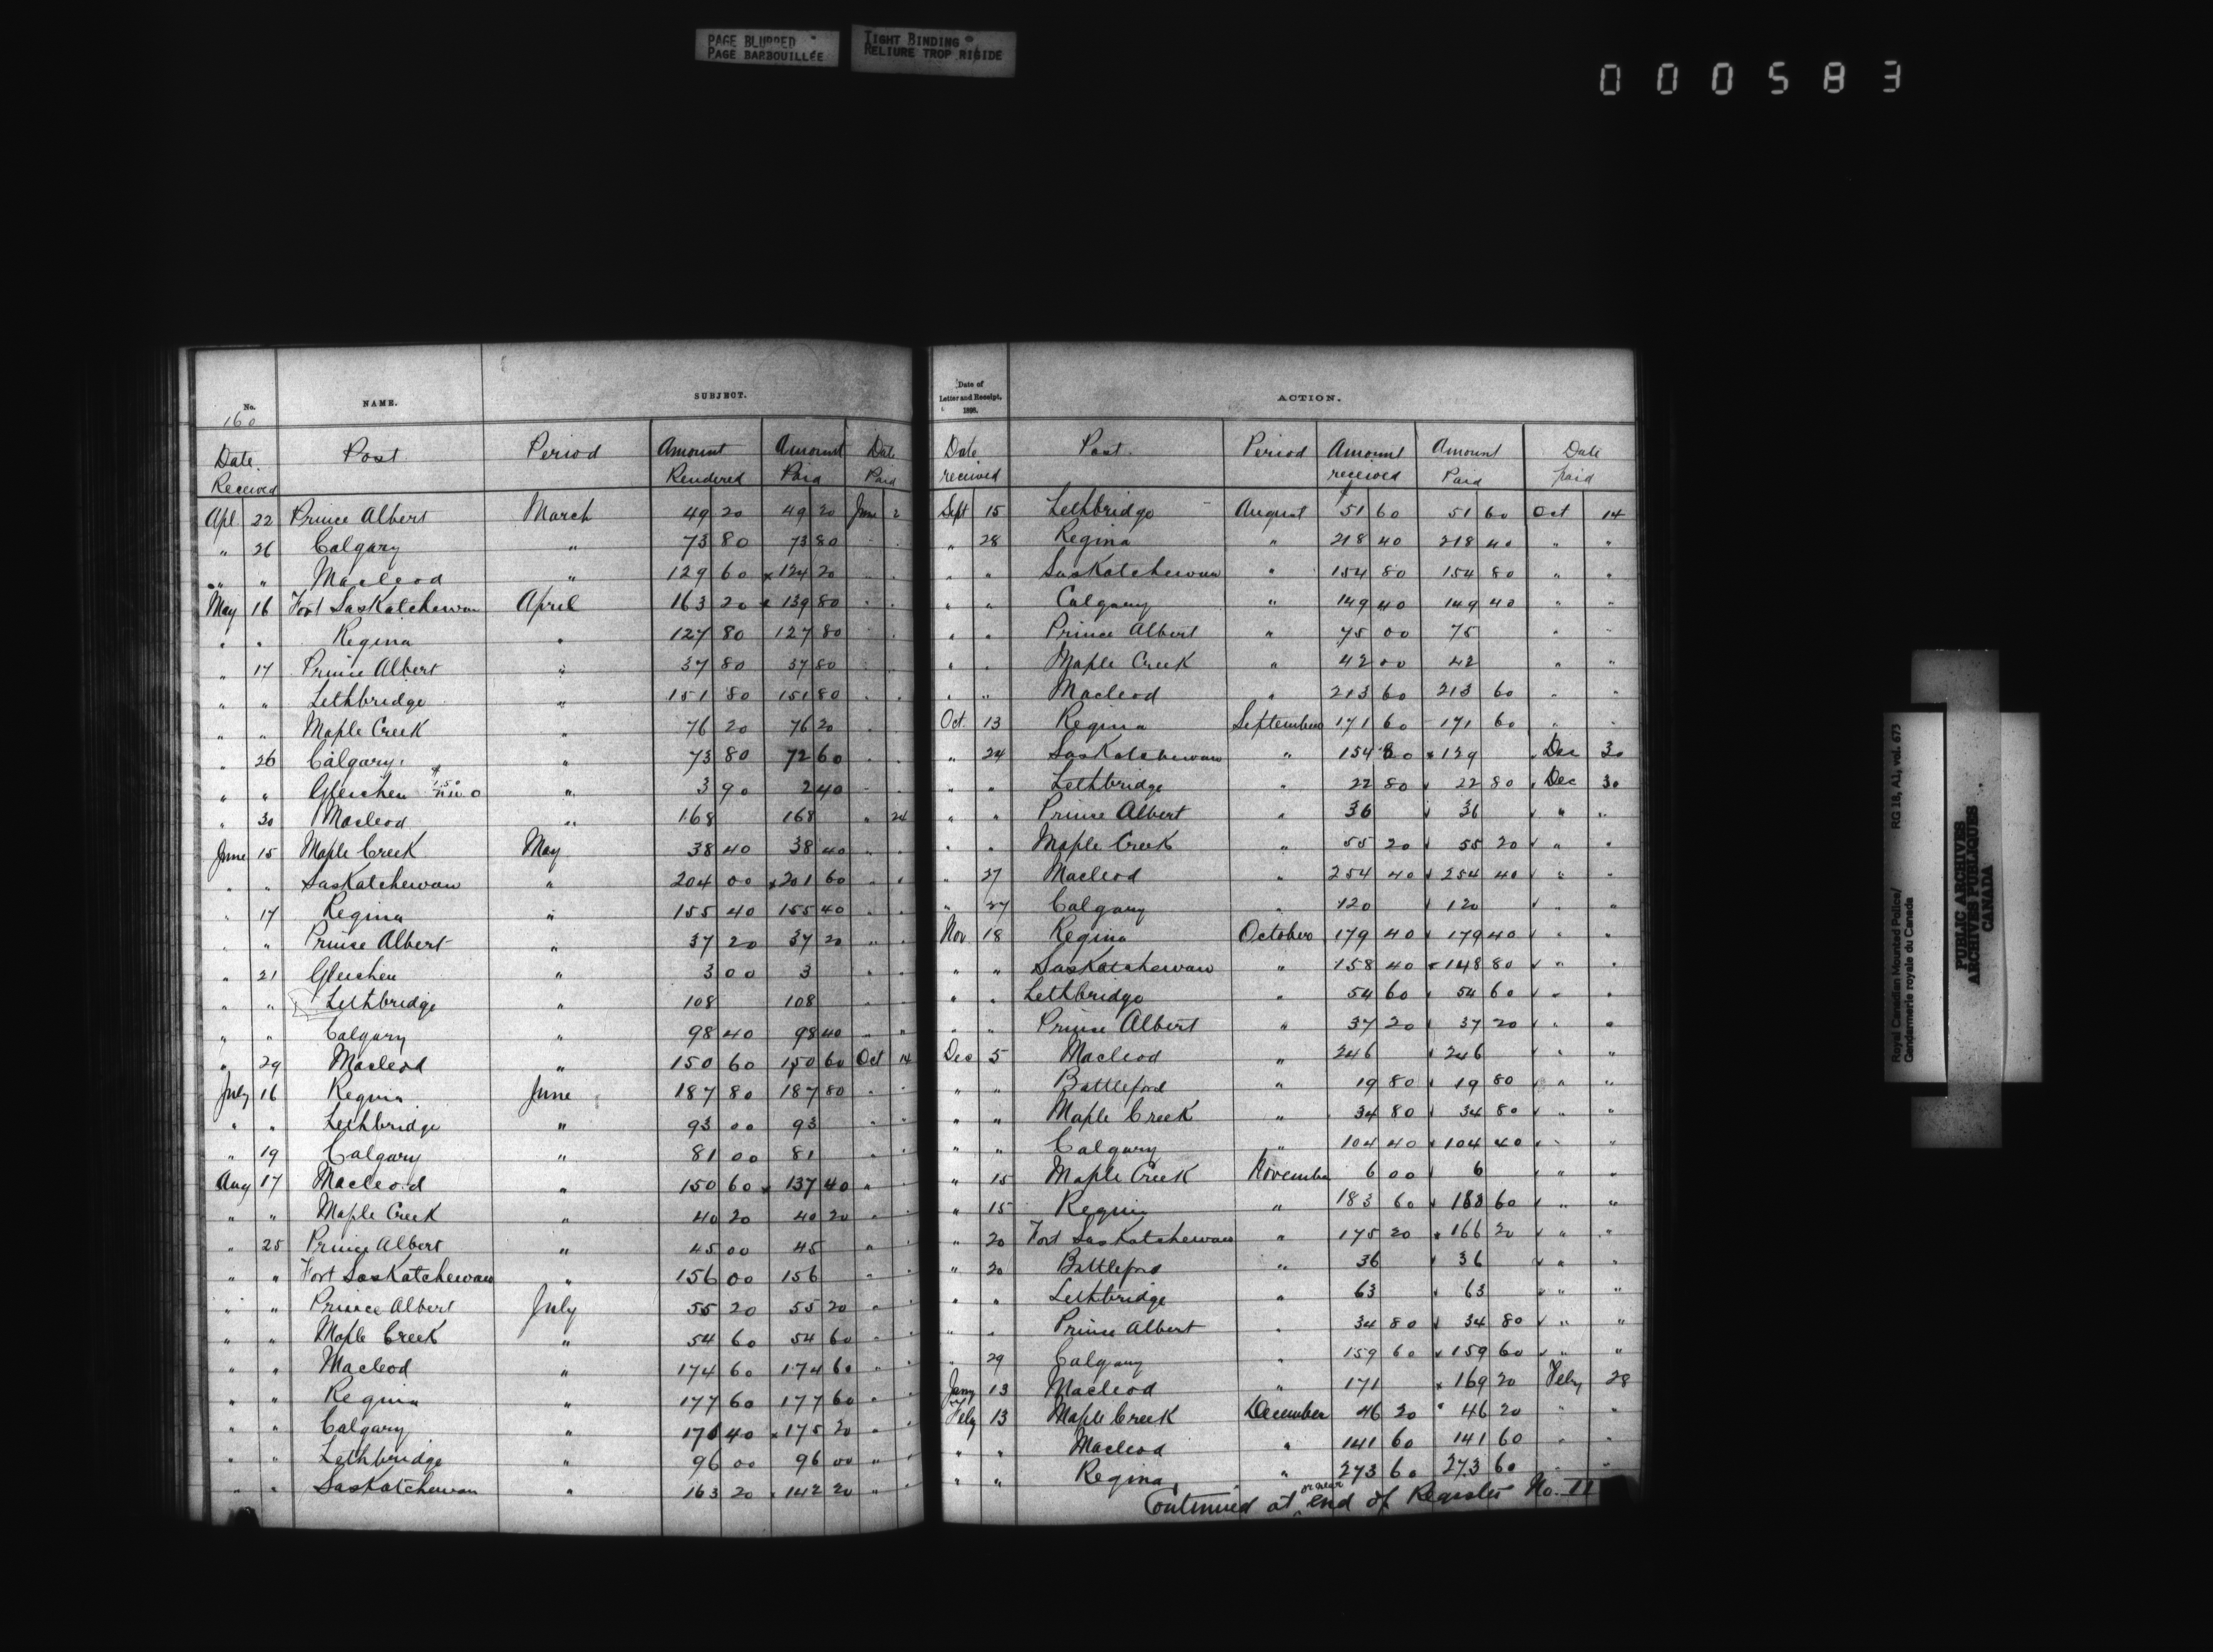 PAGE BLURRED
PAGE BARBOUILLÉE
TIGHT BINDING
RELIURE TROP RIGIDE
000583
No. NAME. SUBJECT.
160
Date Received Post Period Amount Rendered Amount Paid Date Paid
Apl 22 Prince Albert March 49 20 49 20 June 2
" 26 Calgary " 73 80 73 80 " "
" " Macleod " 129 60 x 124 20 " "
May 16 Fort Saskatchewan April 163 20 x 139 80 " "
" " Regina " 127 80 127 80 " "
" 17 Prince Albert " 37 80 37 80 " "
" " Lethbridge " 151 80 151 80 " "
" " Maple Creek " 76 20 76 20 " "
" 26 Calgary " 73 80 72 60 " "
" " Gleichen " 3 90 2 40 " "
" 30 Macleod " 168 168 " 24
June 15 Maple Creek May 38 40 38 40 " "
" " Saskatchewan " 204 00 x 201 60 " "
" 17 Regina " 155 40 155 40 " "
" " Prince Albert " 37 20 37 20 " "
" 21 Gleichen " 3 00 3 " "
" " Lethbridge " 108 108 " "
" " Calgary " 98 40 98 40 " "
" 29 Macleod " 150 60 150 60 Oct 14
July 16 Regina June 187 80 187 80 " "
" " Lethbridge " 93 00 93 " "
" 19 Calgary " 81 00 81 " "
Aug 17 Macleod " 150 60 x 137 40 " "
" " Maple Creek " 40 20 40 20 " "
" 25 Prince Albert " 45 00 45 " "
" " Fort Saskatchewan " 156 00 156 " "
" " Prince Albert July 55 20 55 20 " "
" " Maple Creek " 54 60 54 60 " "
" " Macleod " 174 60 174 60 " "
" " Regina " 177 60 177 60 " "
" " Calgary " 176 40 x 175 20 " "
" " Lethbridge " 96 00 96 00 " "
" " Saskatchewan " 163 20 x 142 20 " "
Date of Letter and Receipt, 1898. ACTION.
Date received Post. Period Amount received Amount Paid Date paid
Sept 15 Lethbridge August $51 60 51 60 Oct 14
" 28 Regina " 218 40 218 40 " "
" " Saskatchewan " 154 80 154 80 " "
" " Calgary " 149 40 149 40 " "
" " Prince Albert " 75 00 75 " "
" " Maple Creek " 42 00 42 " "
" " Macleod " 213 60 213 60 " "
Oct 13 Regina September 171 60 171 60 " "
" 24 Saskatchewan " 154 80 x 129 Dec 30
" " Lethbridge " 22 80 22 80 Dec 30
" " Prince Albert " 36 36 " "
" " Maple Creek " 55 20 55 20 " "
" 27 Macleod " 254 40 254 40 " "
" 27 Calgary " 120 120 " "
Nov 18 Regina October 179 40 179 40 " "
" " Saskatchewan " 158 40 x 148 80 " "
" " Lethbridge " 54 60 54 60 " "
" " Prince Albert " 37 20 37 20 " "
Dec 5 Macleod " 246 246 " "
" " Battleford " 19 80 19 80 " "
" " Maple Creek " 34 80 34 80 " "
" " Calgary " 104 40 104 40 " "
" 15 Maple Creek November 6 00 6 " "
" 15 Regina " 183 60 183 60 " "
" 20 Fort Saskatchewan " 175 20 x 166 20 " "
" 20 Battleford " 36 36 " "
" " Lethbridge " 63 63 " "
" " Prince Albert " 34 80 34 80 " "
" 29 Calgary " 159 60 159 60 " "
Jany 13 Macleod " 171 x 169 20 Feby 28
Feby 13 Maple Creek December 46 20 46 20 " "
" " Macleod " 141 60 141 60 " "
" " Regina " 273 60 273 60 " "
Continued at or near end of Register No. 11
Royal Canadian Mounted Police/ RG 18, A1, vol. 673
Gendarmerie royale du Canada
PUBLIC ARCHIVES
ARCHIVES PUBLIQUES
CANADA